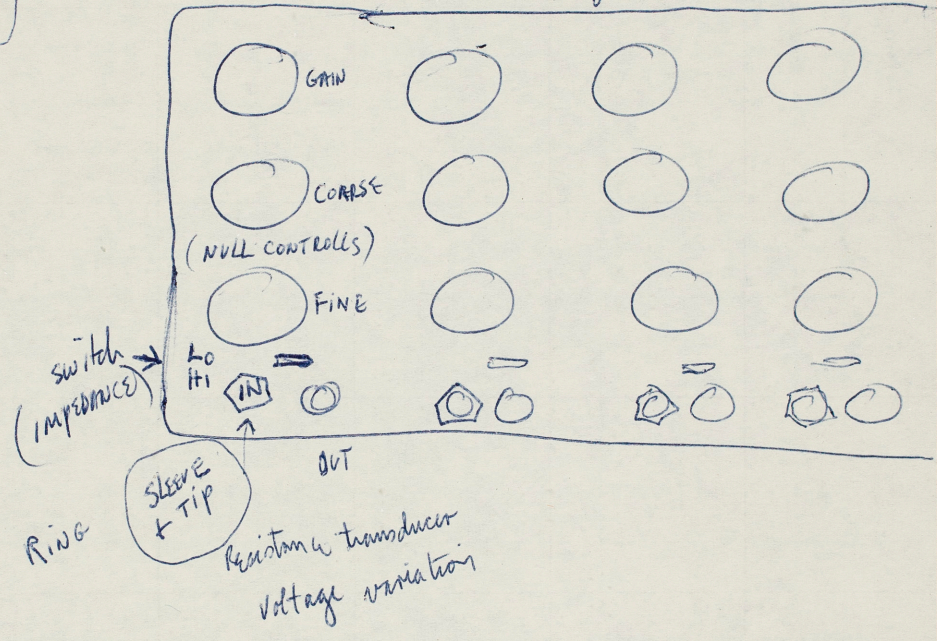 GAIN
COARSE
(NULL CONTROLLS)
FINE
switch
(IMPEDANCE)
Lo
Hi
IN
OUT
SLEEVE
+ Tip
RING
Resistance transducer
Voltage variation